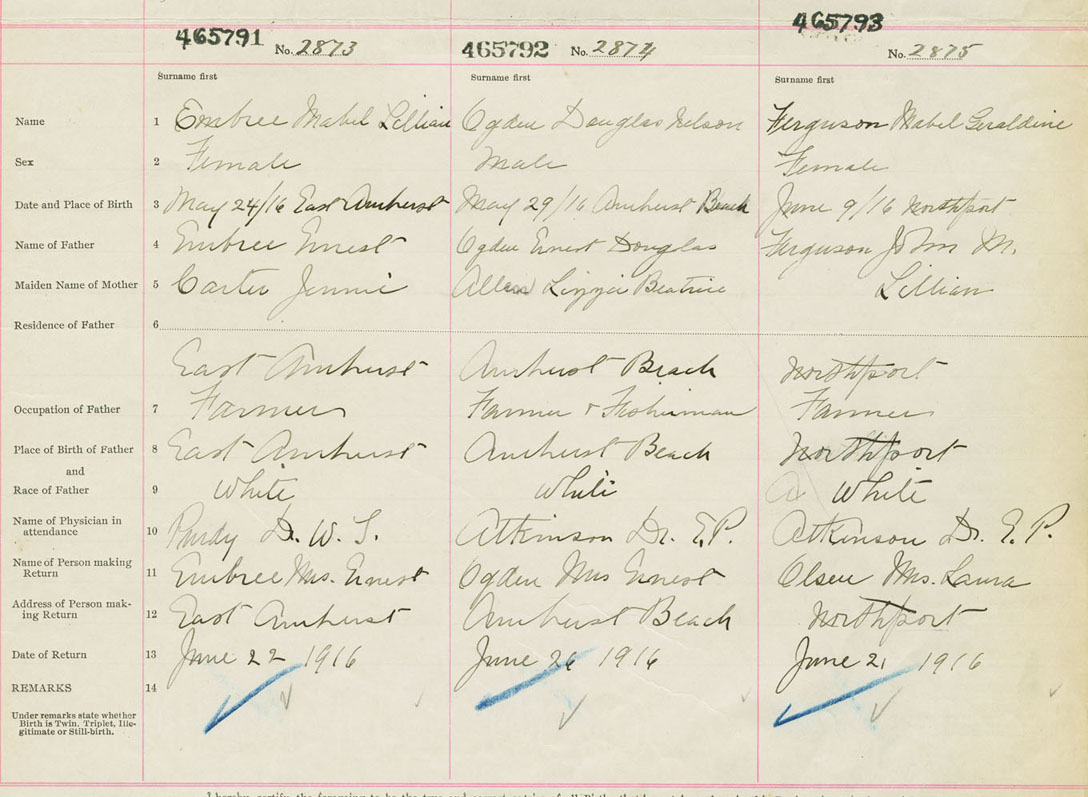 465791 No. 2873 465792 No. 2874 465793 No. 2875
Surname first Surname first Surname first
Name 1 Embree Mabel Lillian Ogden Douglas Nelson Ferguson Mabel Geraldine
Sex 2 Female Male Female
Date and Place of Birth 3 May 24/16 East Amherst May 29/16 Amherst Beach June 9/16 Northport
Name of Father 4 Embree Ernest Ogden Ernest Douglas Ferguson John M.
Maiden Name of Mother 5 Carter Jennie Allan Lizzie Beatrice Lillian
Residence of Father 6
East Amherst Amherst Beach Northport
Occupation of Father 7 Farmer Farmer & Fisherman Farmer
Place of Birth of Father 8 East Amherst Amherst Beach Northport
and
Race of Father 9 White White White
Name of Physician in
attendance 10 Purdy Dr. W. S. Atkinson Dr. E.P. Atkinson Dr. E. P.
Name of Person making
Return 11 Embree Mrs. Ernest Ogden Mrs Ernest Olsen Mrs. Laura
Address of Person mak-
ing Return 12 East Amherst Amherst Beach Northport
Date of Return 13 June 22 1916 June 26 1916 June 21 1916
REMARKS 14
Under remarks state whether
Birth is Twin. Triplet, Ille-
gitimate or Still-birth.